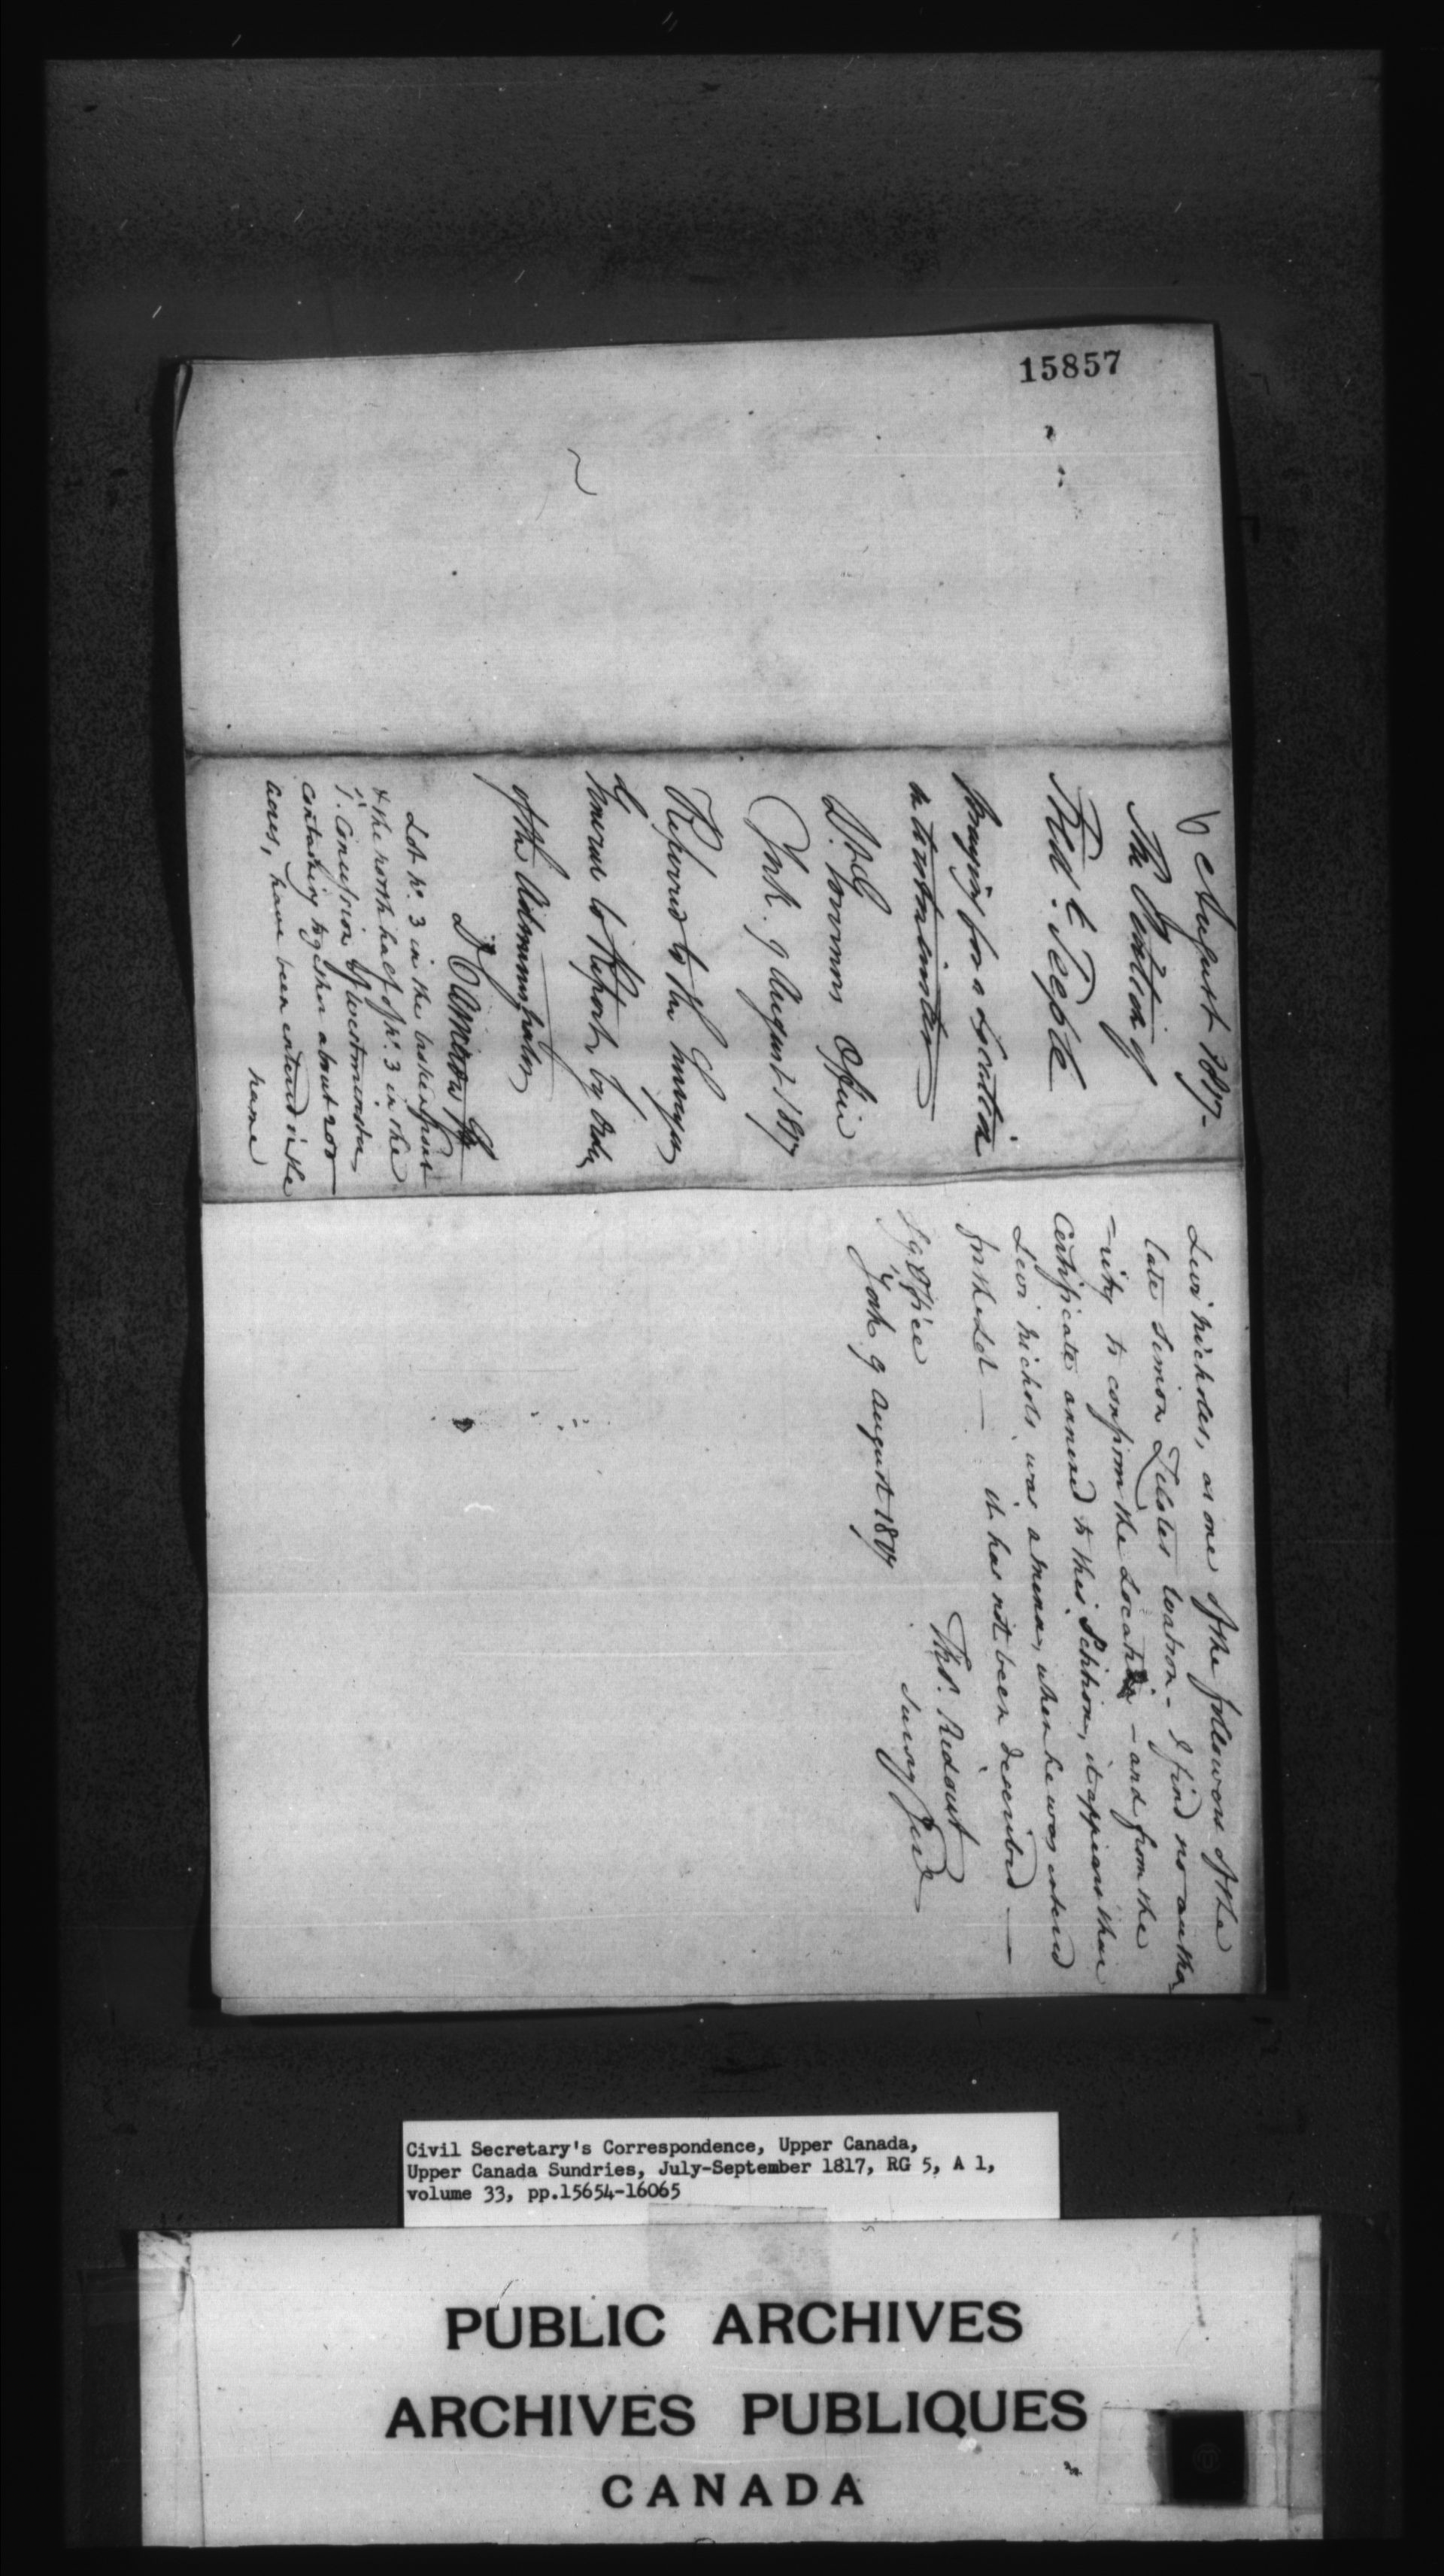 15857
6 August 1817-
The Petition of
Praying for a location
in Westminster
Lt. Governors Office
York. 9 August 1817
Referred to the Surveyor
General to Report, by Order
of the Administrator
D Cameron
Lot No. 3 in the broken front
& the north half of No. 3 in the
1st. Concession of Westminster
containing together about 200
acres, have been entered in the
name
Levi Nicholes, as one of the followers of the
late Simon Zelotes Watson - I find no autho
-rity to confirm the Location - and from the
Certificate annexed to this Petition, it appears that
Levi Nichols, was a minor, when he was entered
for the Lot — it has not been described —
S G Office
York 9 August 1817
Thos. Ridout
Survey Genl
Civil Secretary's Correspondence, Upper Canada,
Upper Canada Sundries, July-September 1817, RG 5, A 1,
volume 33, pp.15654-16065
PUBLIC ARCHIVES
ARCHIVES PUBLIQUES
CANADA